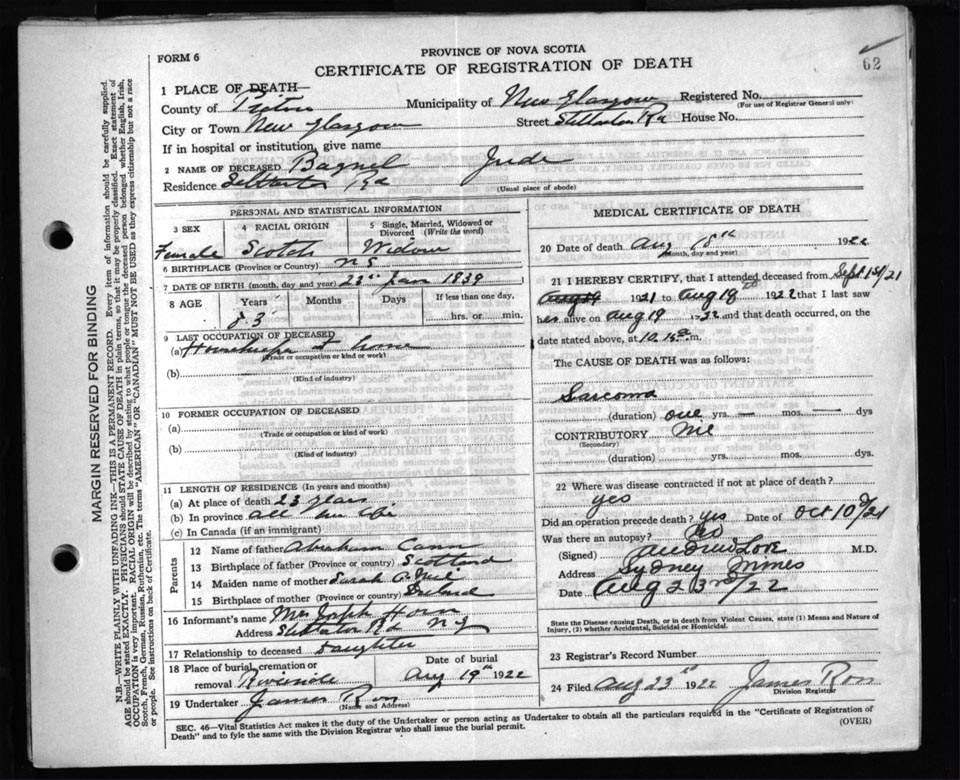 62
PROVINCE OF NOVA SCOTIA
FORM 6
CERTIFICATE OF REGISTRATION OF DEATH
1 PLACE OF DEATH—
County of Pictou Municipality of New Glasgow Registered No.
(For use of Registrar General only)
City or Town New Glasgow Street Stellarton Rd House No.
If in hospital or institution, give name
2 NAME OF DECEASED Bagnel Jude
Residence Stellarton Rd (Usual place of abode)
PERSONAL AND STATISTICAL INFORMATION
3 SEX 4 RACIAL ORIGIN 5 Single, Married, Widowed or Divorced (Write the word)
Female Scotch Widow
6 BIRTHPLACE (Province or Country) N S
7 DATE OF BIRTH (month, day and year) 23rd Jan 1839
8 AGE Years Months Days If less than one day,
83 hrs. or min.
9 LAST OCCUPATION OF DECEASED
(a) Housekeeper at home
(Trade or occupation or kind or work)
(b)
(Kind of industry)
10 FORMER OCCUPATION OF DECEASED
(a)
(Trade or occupation or kind of work)
(b)
(Kind of industry)
11 LENGTH OF RESIDENCE (In years and months)
(a) At place of death 23 years
(b) In province all her life
(c) In Canada (if an immigrant)
Parents
12 Name of father Abraham Cann
13 Birthplace of father (Province or country) Scotland
14 Maiden name of mother Sarah
15 Birthplace of mother (Province or country) Ireland
16 Informant's name Mrs Joseph Horn
Address Stellarton Rd N S
17 Relationship to deceased Daughter
18 Place of burial, cremation or removal Date of burial
Riverside Aug 19th 1922
19 Undertaker James Ross
(Name and Address)
MEDICAL CERTIFICATE OF DEATH
20 Date of death Aug 18th 1922
(Month, day and year)
21 I HEREBY CERTIFY, that I attended deceased from Sept 1st/21
1921 to Aug 18th 1922 that I last saw
her alive on Aug 19 1922 and that death occurred, on the
date stated above, at 10.15 a m.
The CAUSE OF DEATH was as follows:
Sarcoma
(duration) one yrs. — mos. — dys
CONTRIBUTORY
(Secondary)
(duration) yrs. mos. dys.
22 Where was disease contracted if not at place of death?
yes
Did an operation precede death? yes Date of Oct 10th/21
Was there an autopsy? No
(Signed) Andrew Love M.D.
Address Sydney Mines
Date Aug 23rd/22
State the Disease causing Death, or in death from Violent Causes, state (1) Means and Nature of
Injury, (2) whether Accidental, Suicidal or Homicidal.
23 Registrar's Record Number
24 Filed Aug 23rd 1922 James Ross
Division Registrar
SEC. 46—Vital Statistics Act makes it the duty of the Undertaker or person acting as Undertaker to obtain all the particulars required in the "Certificate of Registration of
Death" and to fyle the same with the Division Registrar who shall issue the burial permit.
(OVER)
MARGIN RESERVED FOR BINDING
N.B.—WRITE PLAINLY WITH UNFADING INK—THIS IS A PERMANENT RECORD. Every item of information should be carefully supplied.
AGE should be stated EXACTLY. PHYSICIANS should STATE CAUSE OF DEATH in plain terms, so that it may be properly classified. Exact statement of
OCCUPATION is very important. RACIAL ORIGIN will be described by stating to what people or tongue the deceased person belonged whether English, Irish,
Scotch, French, German, Russian, Ruthenian, etc. The terms "AMERICAN" OR "CANADIAN" MUST NOT BE USED as they express citizenship but not a race
or people. See instructions on back of Certificate.